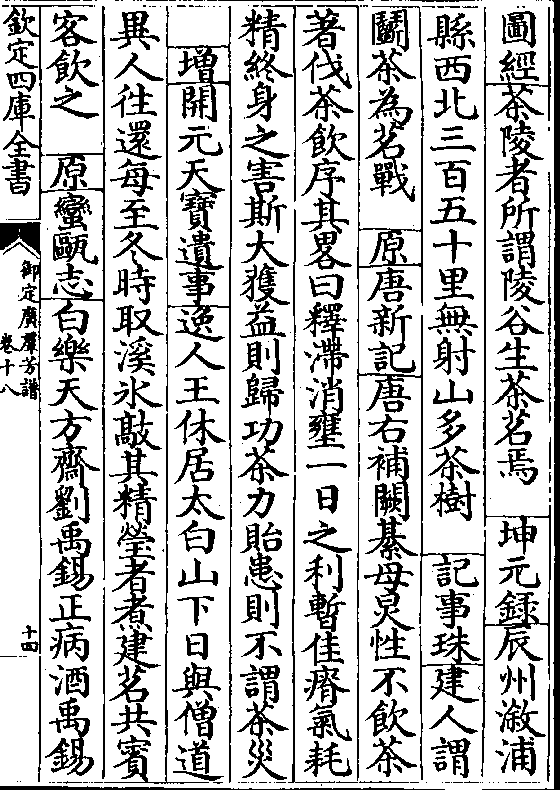 圖經茶陵者所謂陵谷生茶茗焉　坤元録辰州溆浦
縣西北三百五十里無射山多茶樹　記事珠建人謂
鬭茶為茗戰　原唐新記唐右補闕綦母炅性不飲茶
著伐茶飲序其畧曰釋滯消壅一日之利暫佳瘠氣耗
精終身之害斯大獲益則歸功茶力貽患則不謂茶災
增開元天寶遺事逸人王休居太白山下日與僧道
異人往還每至冬時取溪氷敲其精瑩者煮建茗共賓
客飲之　原蠻甌志白樂天方齋劉禹錫正病酒禹錫
欽定四庫全書
御定廣羣芳譜
卷十八
十四